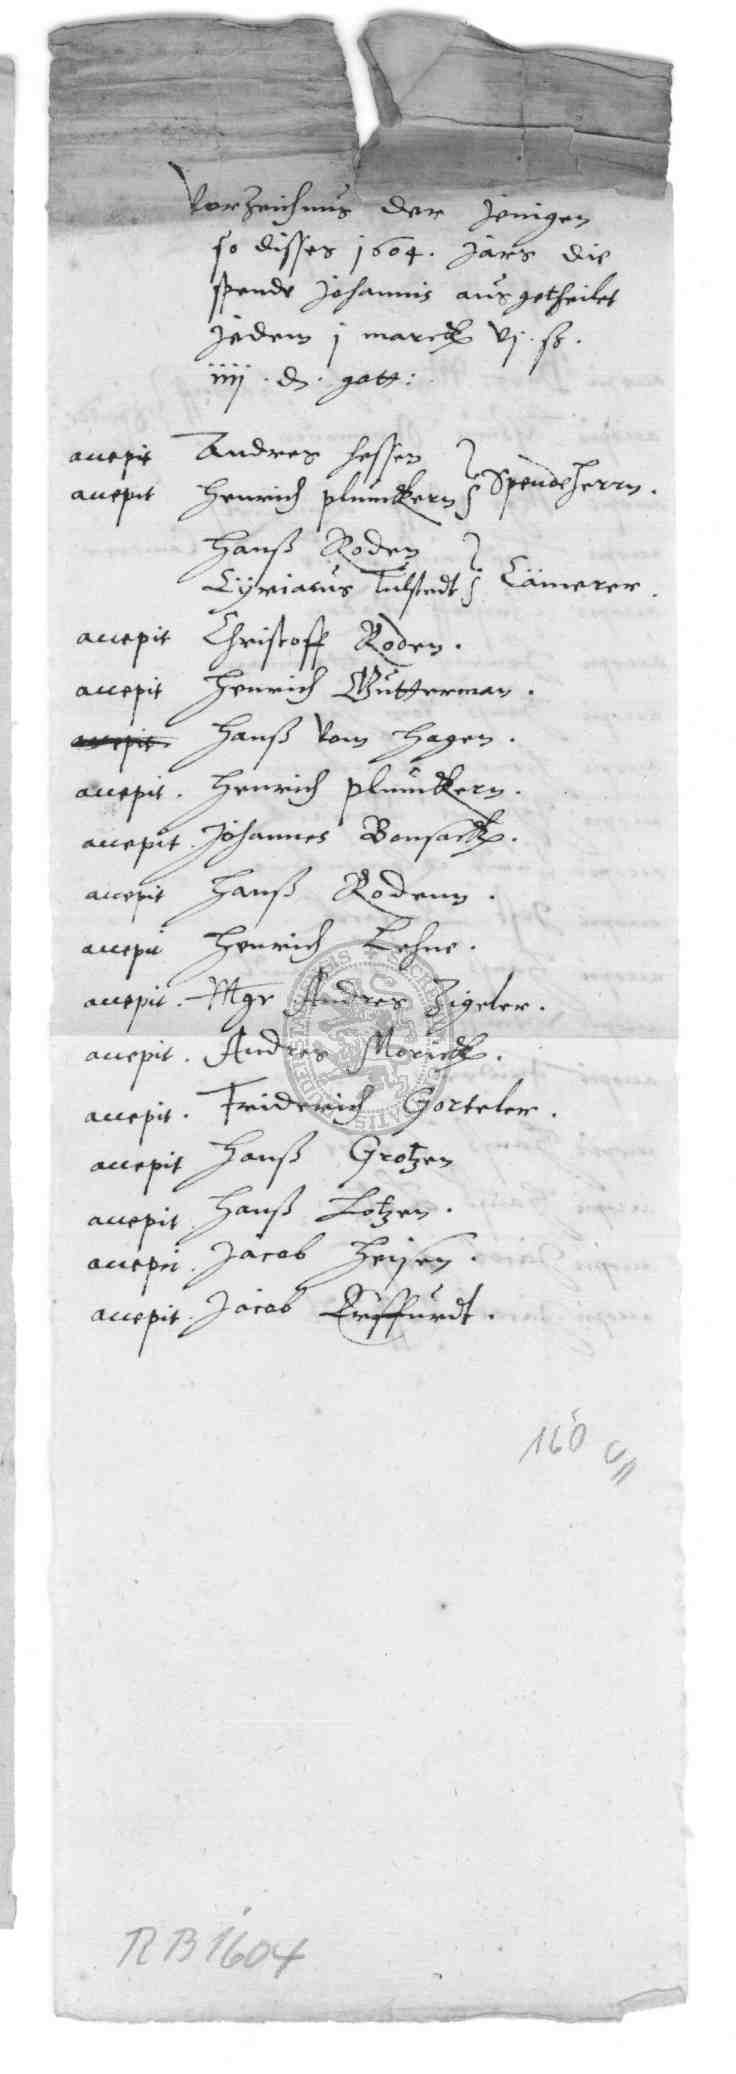 Vorzeichnus der jenigen
so disses 1604. Jars die
spende Johannis ausgetheilet
Jedem j marck vj. ß.
iiij. d. gött:
accepit Andres Hessen
accepit Henrich plünckern } Spendeherrn.
Hanß Roden
Cÿriacus Tulstedt } Cämerer.
accepit Christoff Roden.
accepit Henrich Gutterman.
accepit Hanß vom Hagen.
accepit. Henrich plünckern.
accepit. Johannes Bonsack.
accepit Hanß Rodenn.
accepit Henrich Lehne.
accepit. Mgr Andres Zigeler.
accepit. Andres Morick.
accepit. Friderich Gorteler.
accepit Hanß Grotzen
accepit. Hanß Lotzen.
accepit. Jacob Heisen.
accepit. Jacob Erffurdt.
160
RB 1604